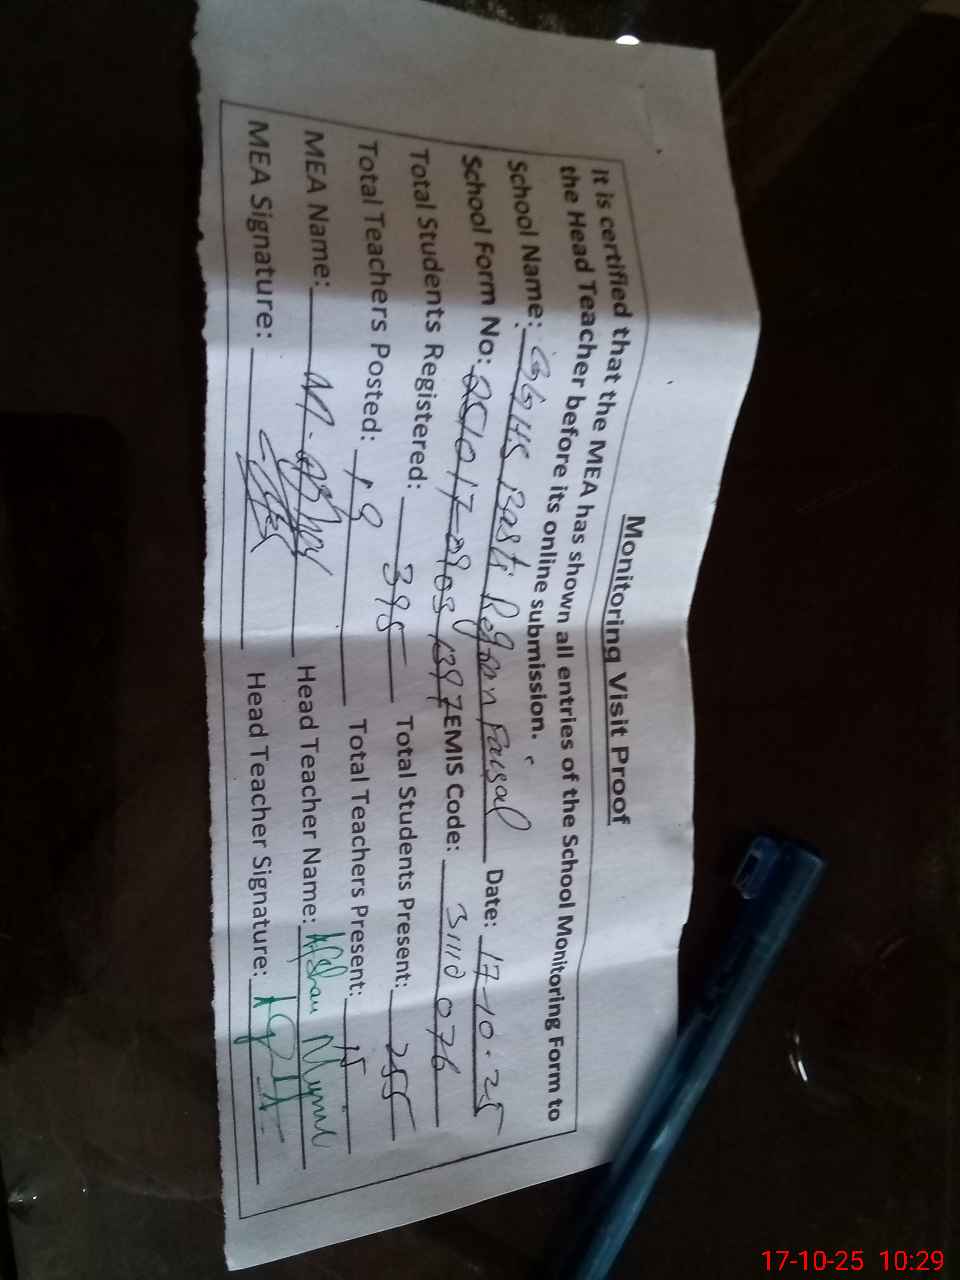 Monitoring Visit Proof
It is certified that the MEA has shown all entries of the School Monitoring Form to
the Head Teacher before its online submission.
School Name: GGHS Basti Faisal Date: 17-10-25
School Form No: 251017-0903-1397 EMIS Code: 31110076
Total Students Registered: 395 Total Students Present: 255
Total Teachers Posted: 18 Total Teachers Present: 15
MEA Name: Head Teacher Name: Afshan
MEA Signature: Head Teacher Signature:
17-10-25 10:29